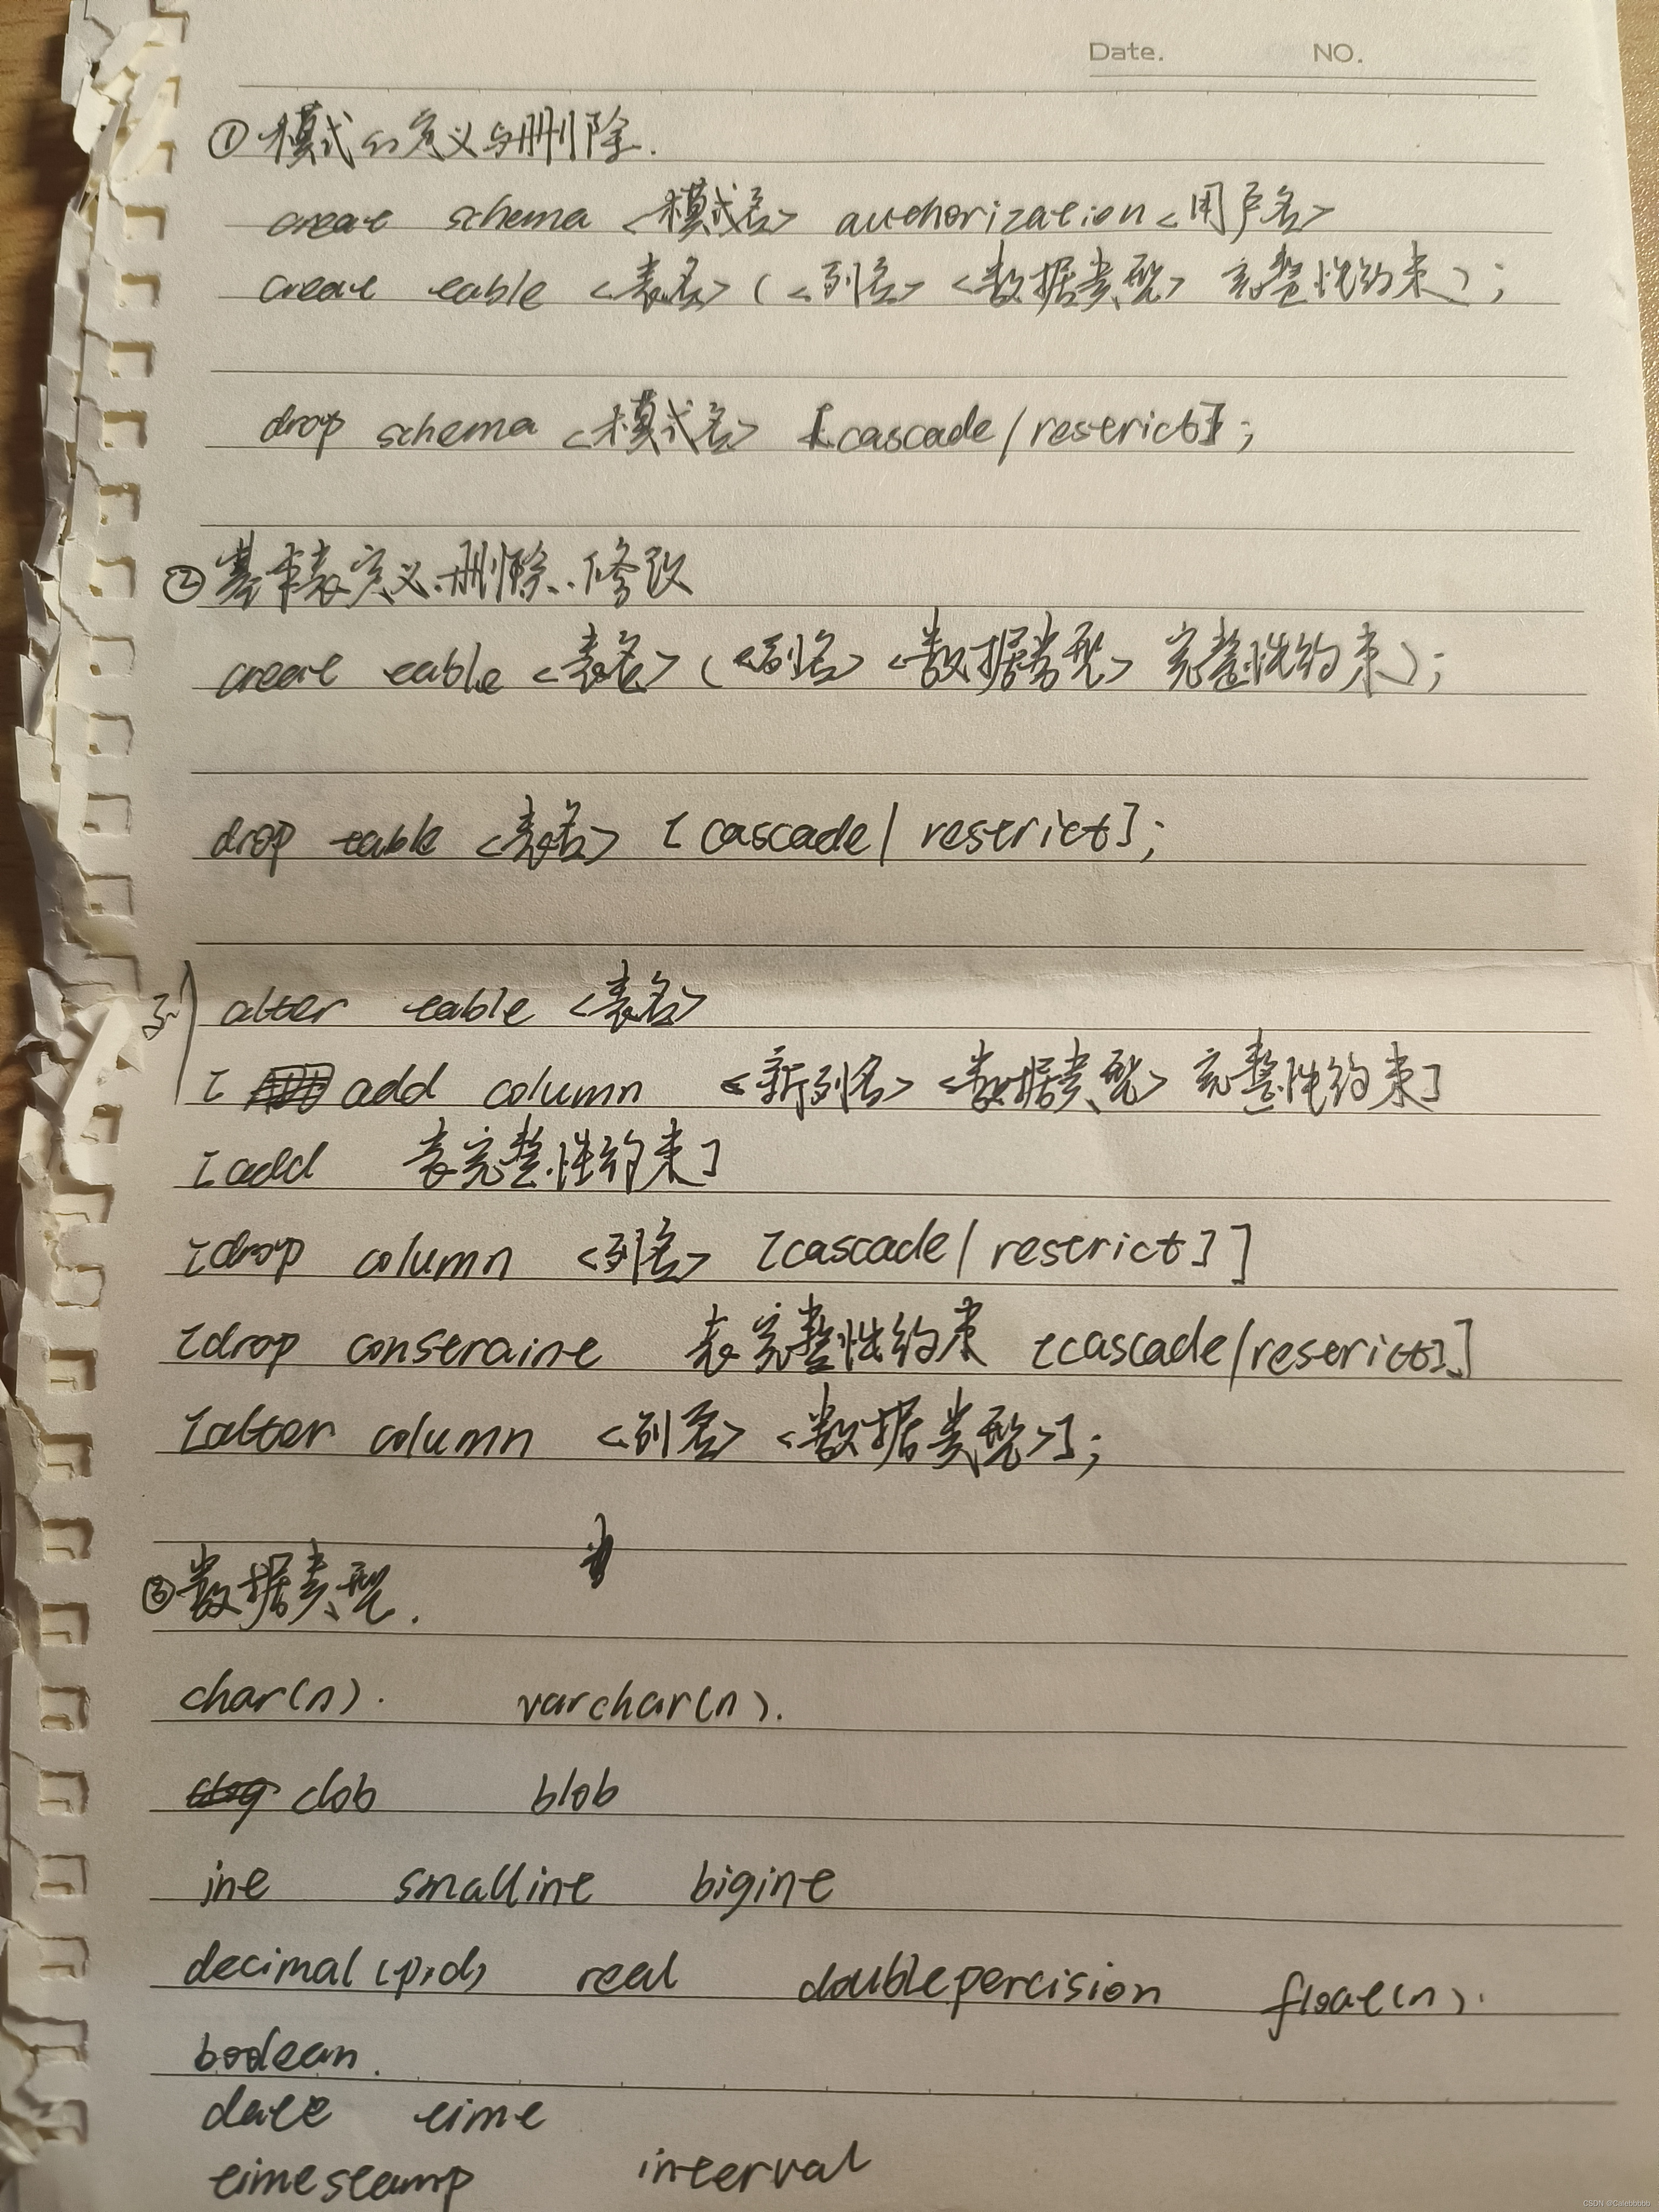 Date. NO.
①模式的定义与删除.
create schema <模式名> authorization <用户名>
create table <表名> ( <列名> <数据类型> 完整性约束 ) ;
drop schema <模式名> [cascade/restrict];
②基本表定义、删除、修改
create table <表名> ( <列名> <数据类型> 完整性约束 ) ;
drop table <表名> [cascade/ restrict];
alter table <表名>
[ add column <新列名> <数据类型> 完整性约束]
[add 表完整性约束]
[drop column <列名> [cascade/ restrict]]
[drop constraint 表完整性约束 [cascade/restrict]]
[alter column <列名> <数据类型>];
③数据类型.
char(n). varchar(n).
clob blob
int smallint bigint
decimal(p,d) real doublepercision float(n).
boolean.
date time
timestamp interval
CSDN @Calebbbbb